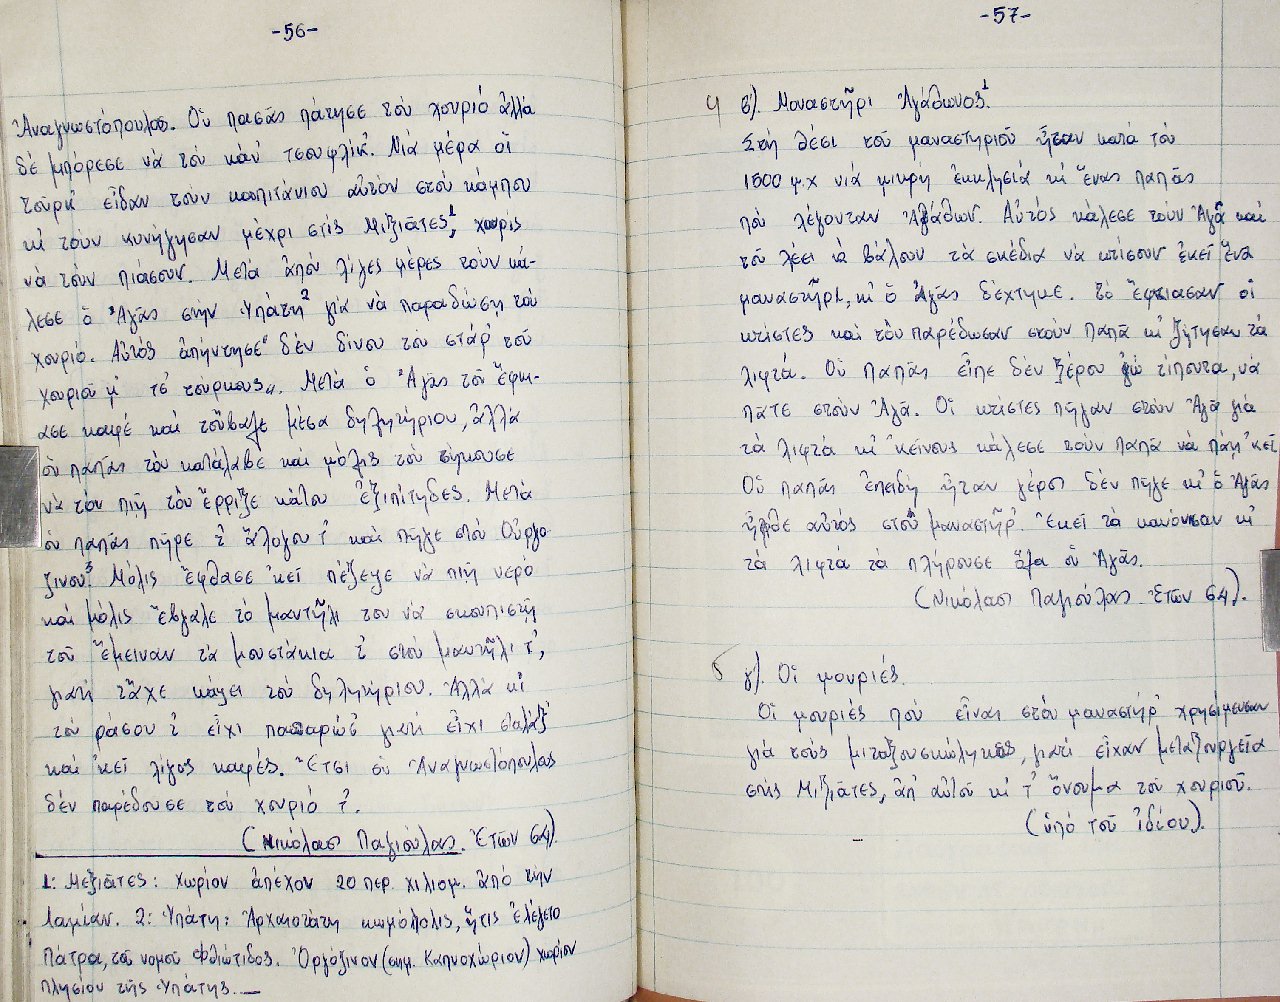 -56-
Ἀναγνωστόπουλος. Οὑ πασᾶς πάτησε τοὺ χουριό ἀλλά
δέ μπόρεσε νὰ τοὺ κάν' τσουφλίκ'. Μιά μέρα οἱ
τοῦρκ' εἶδαν τοὺν καπιτάνιου αὐτὸν στοὺ κάμπου
κι τοὺν κυνήγησαν μέχρι στὶς Μιξιᾶτες¹, χουρίς
νὰ τὸν πιάσουν. Μετά ἀπού λίγες μέρες τοὺν κά-
λεσε ὁ Ἀγᾶς στὴν Ὑπάτη² γιὰ νὰ παραδώση τοὺ
χουριό. Αὐτὸς ἀπήντησε "δέν δίνου τοὺ στάρ' τοῦ
χουριοῦ μ' τς τούρκους". Μετά ὁ Ἀγᾶς τοῦ ἔφκι-
ασε καφέ καὶ τοὔβαλε μέσα δηλητήριου, ἀλλά
οὑ παπᾶς τοὺ κατάλαβε καὶ μόλις τοὺ σήκουσε
νὰ τοὺ πιῆ τοὺ ἔρριξε κάτου ἐξιπίτηδες. Μετά
οὑ παπᾶς πῆρε τ' ἄλογου τ' καὶ πῆγε στοὺ Οὐργο-
ζινου³. Μόλις ἔφθασε 'κεῖ πέζεψε νὰ πιῆ νερό
καὶ μόλις ἔβγαλε τὸ μαντῆλι του νὰ σκουπιστῆ
τοῦ ἔμειναν τὰ μουστάκια τ' στοὺ μαντῆλι τ',
γιατὶ τἄχε κάψει τοὺ δηλητήριου. Ἀλλὰ κι
τοὺ ράσου τ' εἶχι γιατὶ εἶχι
καὶ 'κεῖ λίγος καφές. Ἔτσι οὑ Ἀναγνωστόπουλος
δέν παρέδουσε τοὺ χουριό τ'.
(Νικόλαος Παγιούλας. Ἐτῶν 64).
1: Μεξιᾶτες: χωρίον ἀπέχον 20 περ. χιλιομ. ἀπό τὴν
Λαμίαν. 2: Ὑπάτη: Ἀρχαιοτάτη κωμόπολις, ἥτις ἐλέγετο
Πάτρα, τοῦ νομοῦ Φθιώτιδος. Ὀργόζινον (σημ. Καπνοχώριον) χωρίον
πλησίον τῆς Ὑπάτης.—
-57-
4 β'). Μοναστῆρι Ἀγάθωνος¹.
Στὴ θέσι τοῦ μαναστηριοῦ ἦταν κατὰ τὸ
1500 μ.χ νιά μικρή ἐκκλησιά κι ἕνας παπᾶς
ποὺ λέγονταν Ἀγάθων. Αὐτὸς κάλεσε τοὺν Ἀγᾶ καὶ
τοῦ λέει νὰ βάλουν τὰ σκέδια νὰ κτίσουν ἐκεῖ ἕνα
μαναστῆρι, κι ὁ Ἀγᾶς δέχτηκε. Τὸ ἔφτιασαν οἱ
κτίστες καὶ τοὺ παρέδωσαν στοὺν παπᾶ κι ζήτησαν τὰ
λιφτά. Οὑ παπᾶς εἶπε δὲν ξέρου ἐγώ τίπουτα, νὰ
πᾶτε στοὺν Ἀγᾶ. Οἱ κτίστες πῆγαν στοὺν Ἀγᾶ γιὰ
τὰ λιφτά κι 'κείνους κάλεσε τοὺν παπᾶ νὰ πάη 'κεῖ
Οὑ παπᾶς ἐπειδή ἦταν γέρος δὲν πῆγε κι ὁ Ἀγᾶς
ἦρθε αὐτὸς στοὺ μαναστῆρ'. Ἐκεῖ τὰ κανόνισαν κι
τὰ λιφτά τὰ πλήρουσε ὅλα οὑ Ἀγᾶς.
(Νικόλαος Παγιούλας Ἐτῶν 64).
5 γ'). Οἱ μουριές.
Οἱ μουριές ποὺ εἶναι στοὺ μαναστῆρ' χρησίμευαν
γιὰ τοὺς μιταξουσκώληκας, γιατὶ εἶχαν μεταξουργεῖα
στὶς Μιξιᾶτες, ἀπ' αὐτοῦ κι τ' ὄνουμα τοῦ χουριοῦ.
(ὑπό τοῦ ἰδίου).